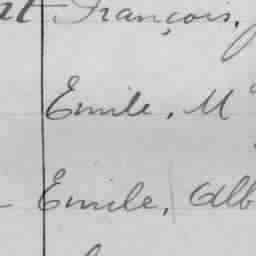 François,
Emile, M
Emile, Alb